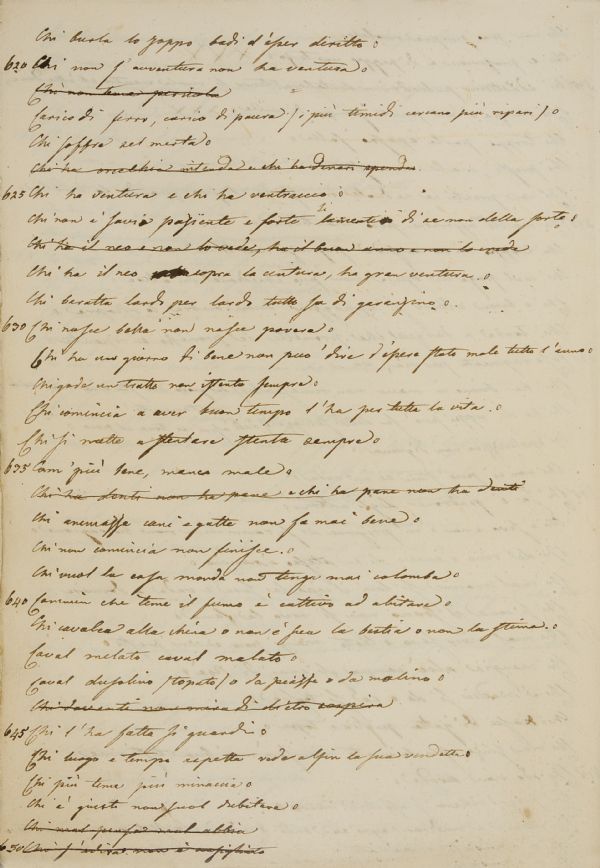 Chi burla lo zoppo badi d'esser diritto
620 Chi non s'avventura non ha ventura
Chi non teme pericolo
Carico di ferro, carico di paura / i più timidi cercano più ripari /
Chi soffra nel
Chi ha orecchie intenda e chi ha denari spenda
625 Chi ha ventura e chi ha
Chi non è savio paziente e forte lamentisi di se non della sorte
Chi ha il neo e non lo vede, ha il buon anno e non lo crede
Chi ha il neo sopra la cintura, ha gran ventura.
Chi baratta lardo per lardo tutto sa di
630 Chi nasce bella non nasce povera
Chi ha un giorno di bene non può dire d'essere stato male tutto l'anno
Chi gode un tratto non istenta sempre
Chi comincia a aver buon tempo l'ha per tutta la vita.
Chi si mette a stentare stenta sempre
635 Com' più bene, manco male
Chi ha denti non ha pane e chi ha pane non ha denti
Chi ammazza cani e gatte non fa mai bene
Chi non comincia non finisce.
Chi vuol la casa monda non tenga mai colomba
640 Cammin che tene il fumo è cattivo ad abitare
Chi cavalca alla china o non è sua la bestia o non la stima.
Caval melato caval malato
Caval /topato/ o da pazzo o da molino
Chi davanti non mira di dietro sospira
645 Chi l'ha fatta si guardi
Chi luogo e tempo aspetta vede alfin la sua vendetta
Chi più teme più minaccia
Chi è giusto non può dubitare
Chi mal pensa mal abbia
650 Chi s'adira non è consigliato